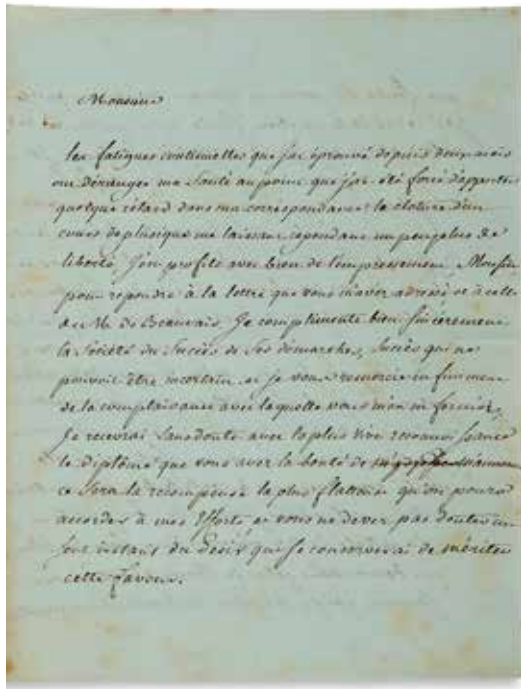 Monsieur
les fatigues continuelles que j'ai éprouvé depuis deux mois
ont dérangé ma santé au point que j'ai été forcé d'apporter
quelque rétard dans ma correspondance: la cloture d'un
cours de physique me laissant cependant un peu plus de
liberté j'en profite avec bien de l'empressement, Monsieur
pour répondre à la lettre que vous m'avez adressé et à celle
de M. de Beauvais. Je complimente bien sincèrement
la Société du Succès de Ses démarches, Succès qui ne
pouvoit être incertain et je vous remercie infiniment
de la complaisance avec laquelle vous m'en informez,
Je recevrai Sans doute avec la plus vive reconnoissance
le diplôme que vous avez la bonté de m'annoncer
ce Sera la récompense la plus flatteuse qu'on pourra
accorder à mes Efforts et vous ne devez pas douter un
Seul instant du désir que je conserverai de mériter
cette faveur.